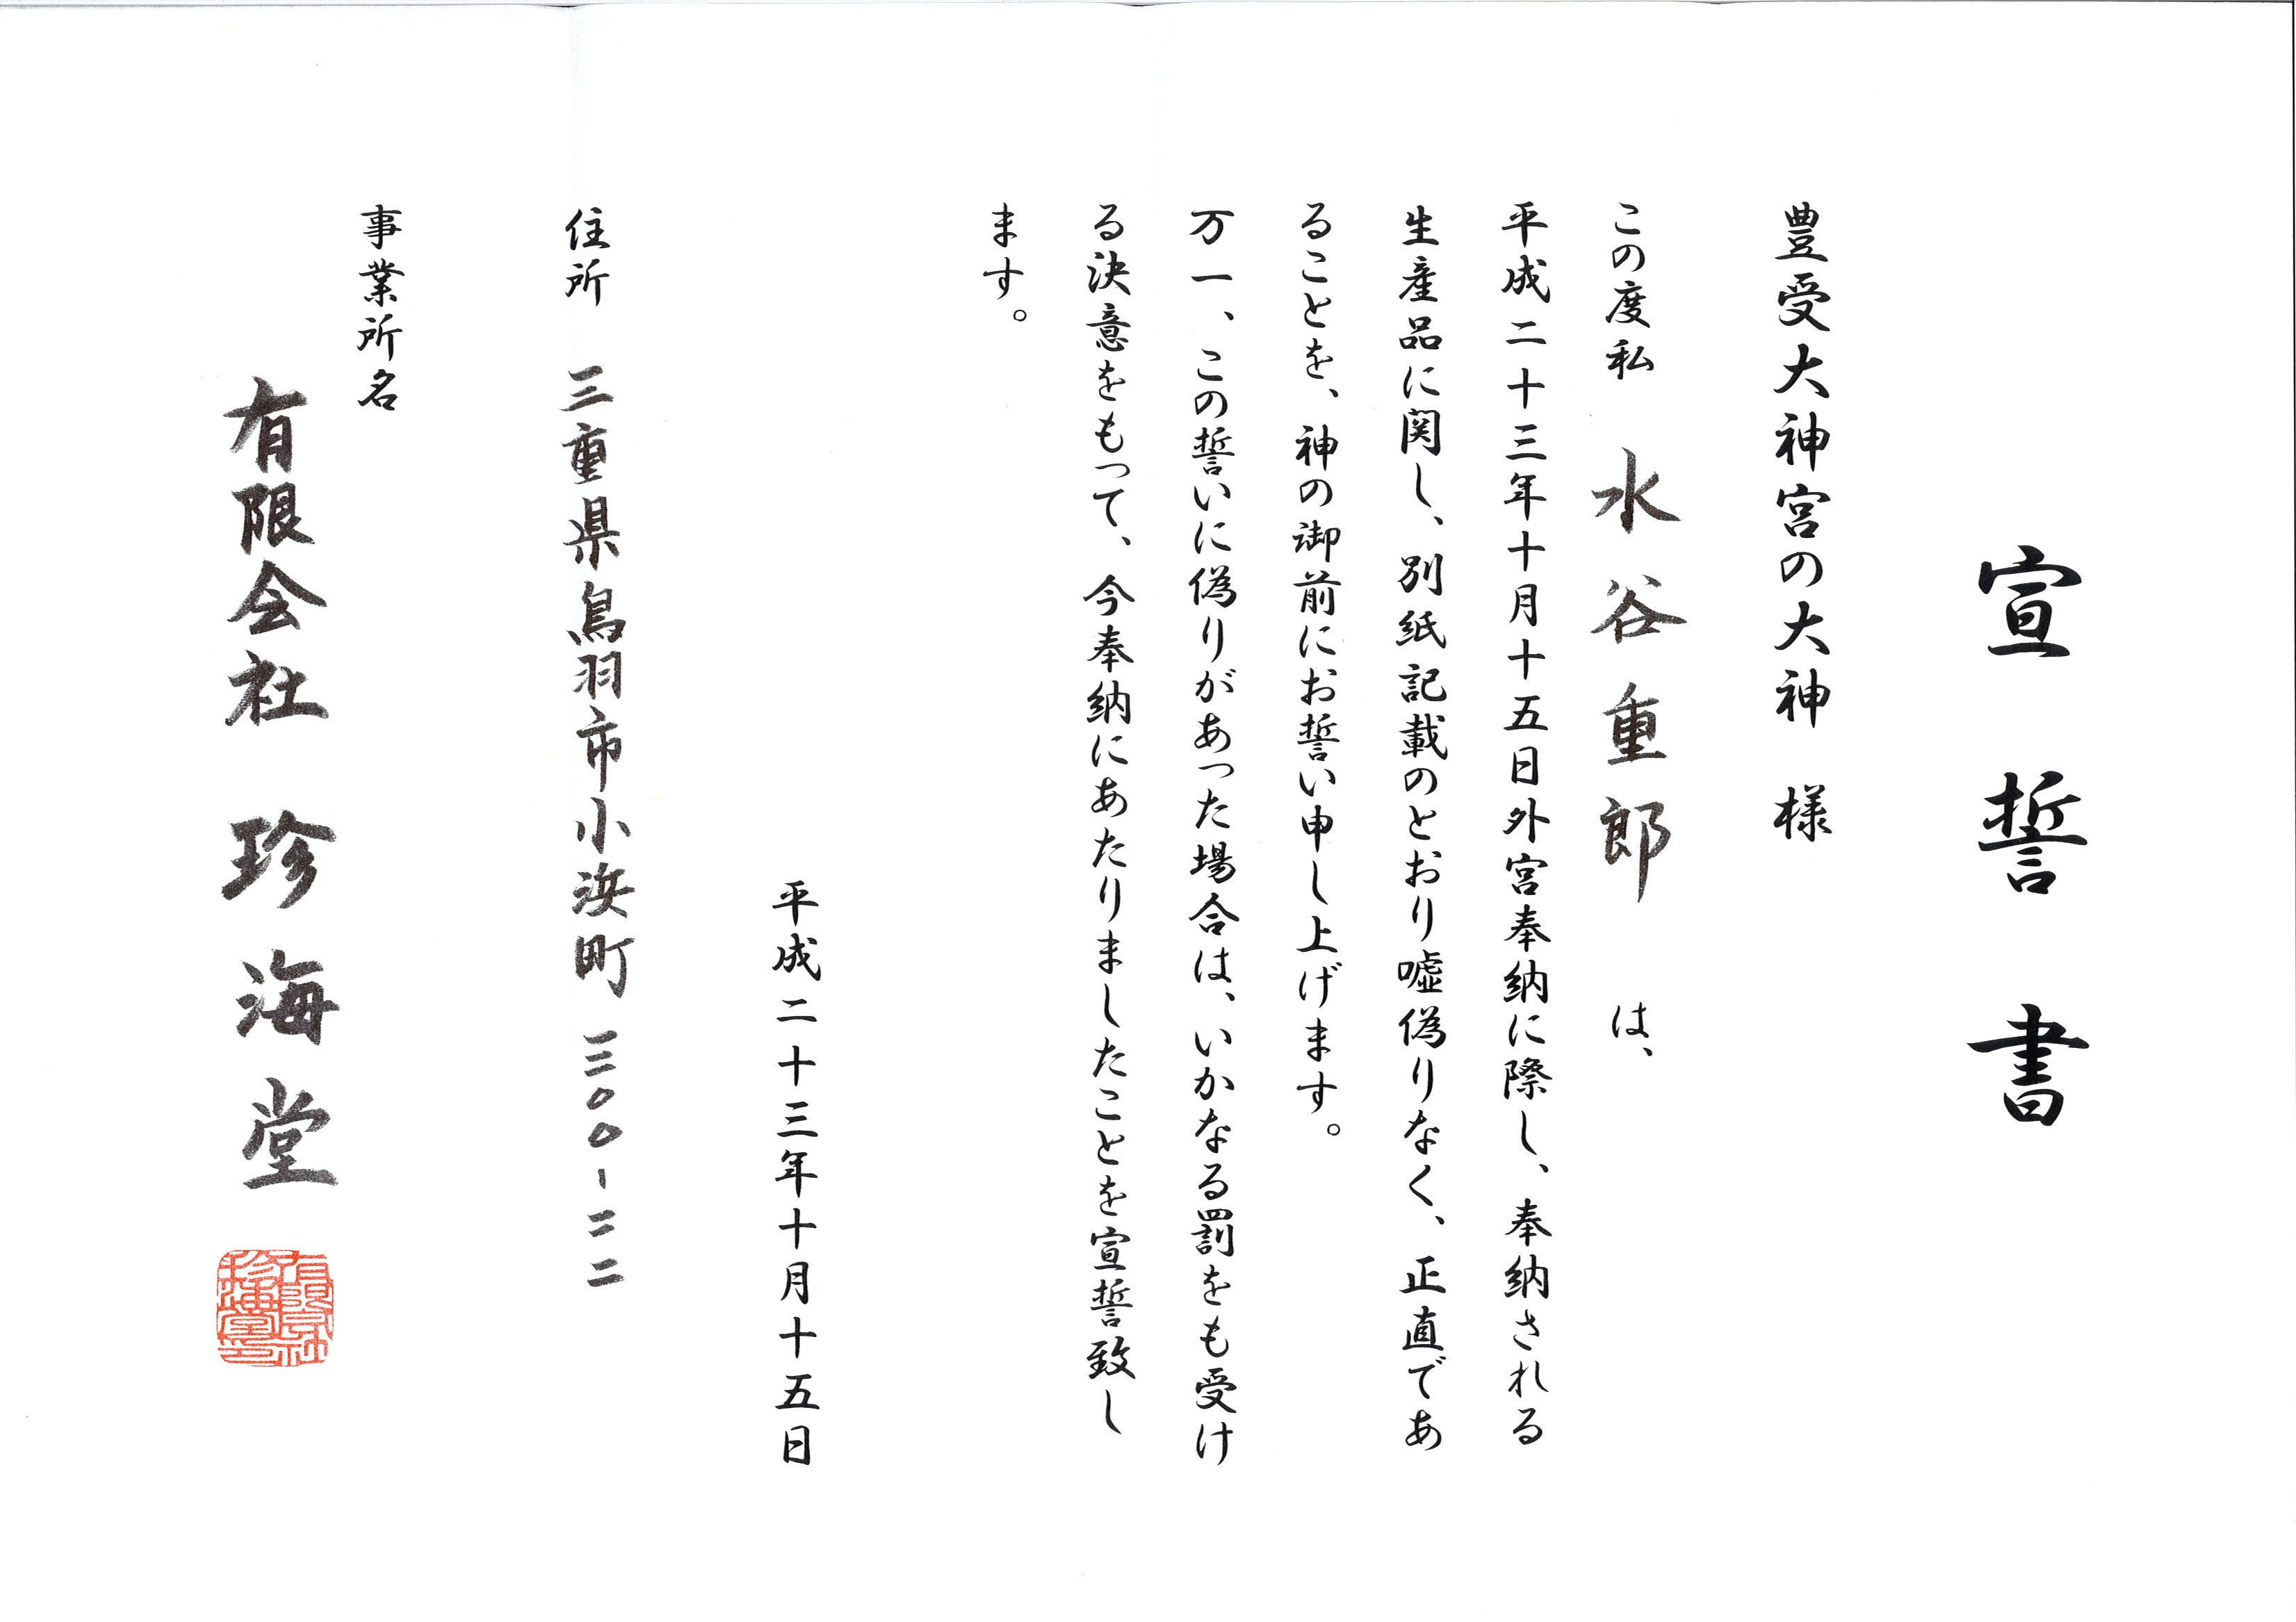 宣誓書
豊受大神宮の大神　様
この度私　水谷重郎　は、
平成二十三年十月十五日外宮奉納に際し、奉納される
生産品に関し、別紙記載のとおり嘘偽りなく、正直であ
ることを、神の御前にお誓い申し上げます。
万一、この誓いに偽りがあった場合は、いかなる罰をも受け
る決意をもって、今奉納にあたりましたことを宣誓致し
ます。
平成二十三年十月十五日
住所　三重県鳥羽市小浜町三〇〇-二二
事業所名
有限会社　珍海堂